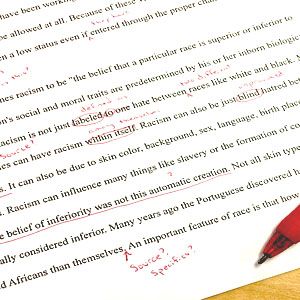 have been working
be allowed at all. Because of these
n a low status even if entered through the proper chan
nes racism to be "the belief that a particular race is superior or inferior to
on's social and moral traits are predetermined by his or her inborn biologic
Racism is not just labeled to one hate between races like white and black. M
ies can have racism within itself. Racism can also be just blind hatred be
Source?
s. It can also be due to skin color, background, sex, language, birth plac
. Racism can influence many things like slavery or the formation of co
e belief of inferiority was not this automatic creation. Not all skin typ
ally considered inferior. Many years ago the Portuguese discovered h
d Africans than themselves. An important feature of race is that how
Source?
Specifics?